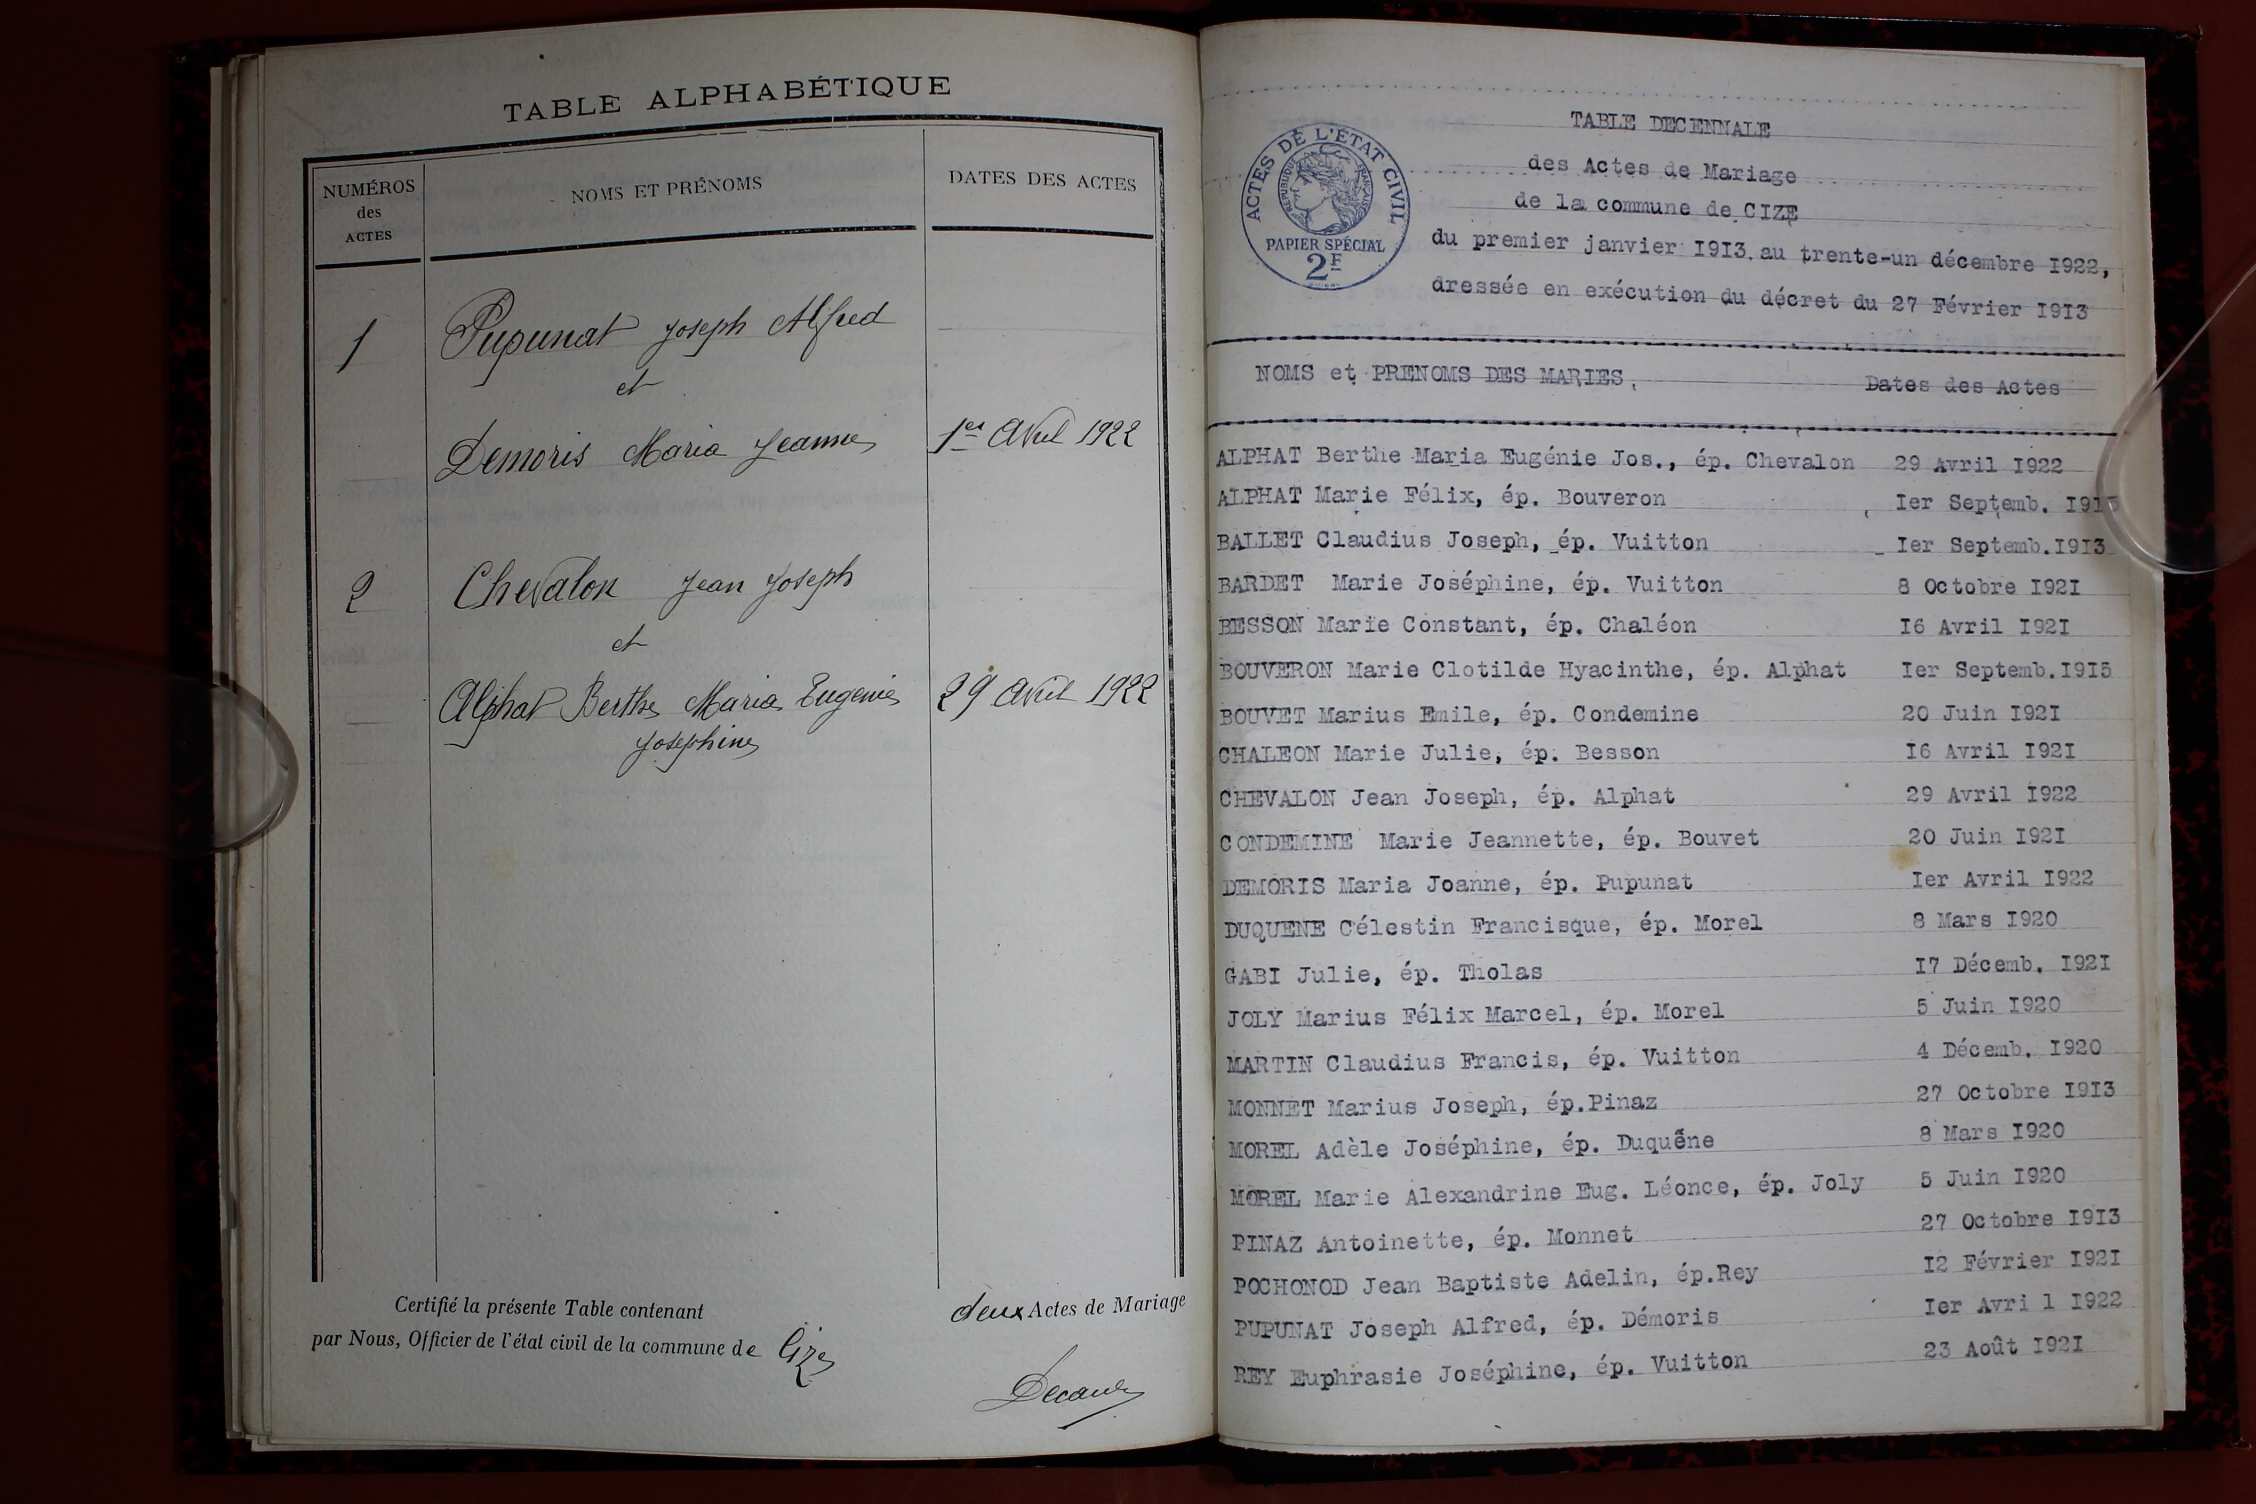 TABLE ALPHABÉTIQUE
NUMÉROS
des
ACTES
NOMS ET PRÉNOMS
DATES DES ACTES
1
Pupunat Joseph Alfred
et
Demoris Maria Jeanne
1er Avril 1922
2
Chevalon Jean Joseph
et
Alphat Berthe Maria Eugenie
29 Avril 1922
Josephine
Certifié la présente Table contenant deux Actes de Mariage
par Nous, Officier de l'état civil de la commune de Cize
TABLE DECENNALE
ACTES DE L'ÉTAT CIVIL
RÉPUBLIQUE FRANÇAISE
PAPIER SPÉCIAL
2F
des Actes de Mariage
de la commune de CIZE
du premier janvier I9I3 au trente-un décembre I922,
dressée en exécution du décret du 27 Février I9I3
NOMS et PRENOMS DES MARIES. Dates des Actes
ALPHAT Berthe Maria Eugénie Jos., ép. Chevalon 29 Avril I922
ALPHAT Marie Félix, ép. Bouveron Ier Septemb. I9I5
BALLET Claudius Joseph, ép. Vuitton Ier Septemb.I9I3
BARDET Marie Joséphine, ép. Vuitton 8 Octobre I92I
BESSON Marie Constant, ép. Chaléon I6 Avril I92I
BOUVERON Marie Clotilde Hyacinthe, ép. Alphat Ier Septemb.I9I5
BOUVET Marius Emile, ép. Condemine 20 Juin I92I
CHALEON Marie Julie, ép. Besson I6 Avril I92I
CHEVALON Jean Joseph, ép. Alphat 29 Avril I922
CONDEMINE Marie Jeannette, ép. Bouvet 20 Juin I92I
DEMORIS Maria Joanne, ép. Pupunat Ier Avril I922
DUQUENE Célestin Francisque, ép. Morel 8 Mars I920
GABI Julie, ép. Tholas I7 Décemb. I92I
JOLY Marius Félix Marcel, ép. Morel 5 Juin I920
MARTIN Claudius Francis, ép. Vuitton 4 Décemb. I920
MONNET Marius Joseph, ép.Pinaz 27 Octobre I9I3
MOREL Adèle Joséphine, ép. Duquêne 8 Mars I920
MOREL Marie Alexandrine Eug. Léonce, ép. Joly 5 Juin I920
PINAZ Antoinette, ép. Monnet 27 Octobre I9I3
POCHONOD Jean Baptiste Adelin, ép.Rey I2 Février I92I
PUPUNAT Joseph Alfred, ép. Démoris Ier Avri l I922
REY Euphrasie Joséphine, ép. Vuitton 23 Août I92I